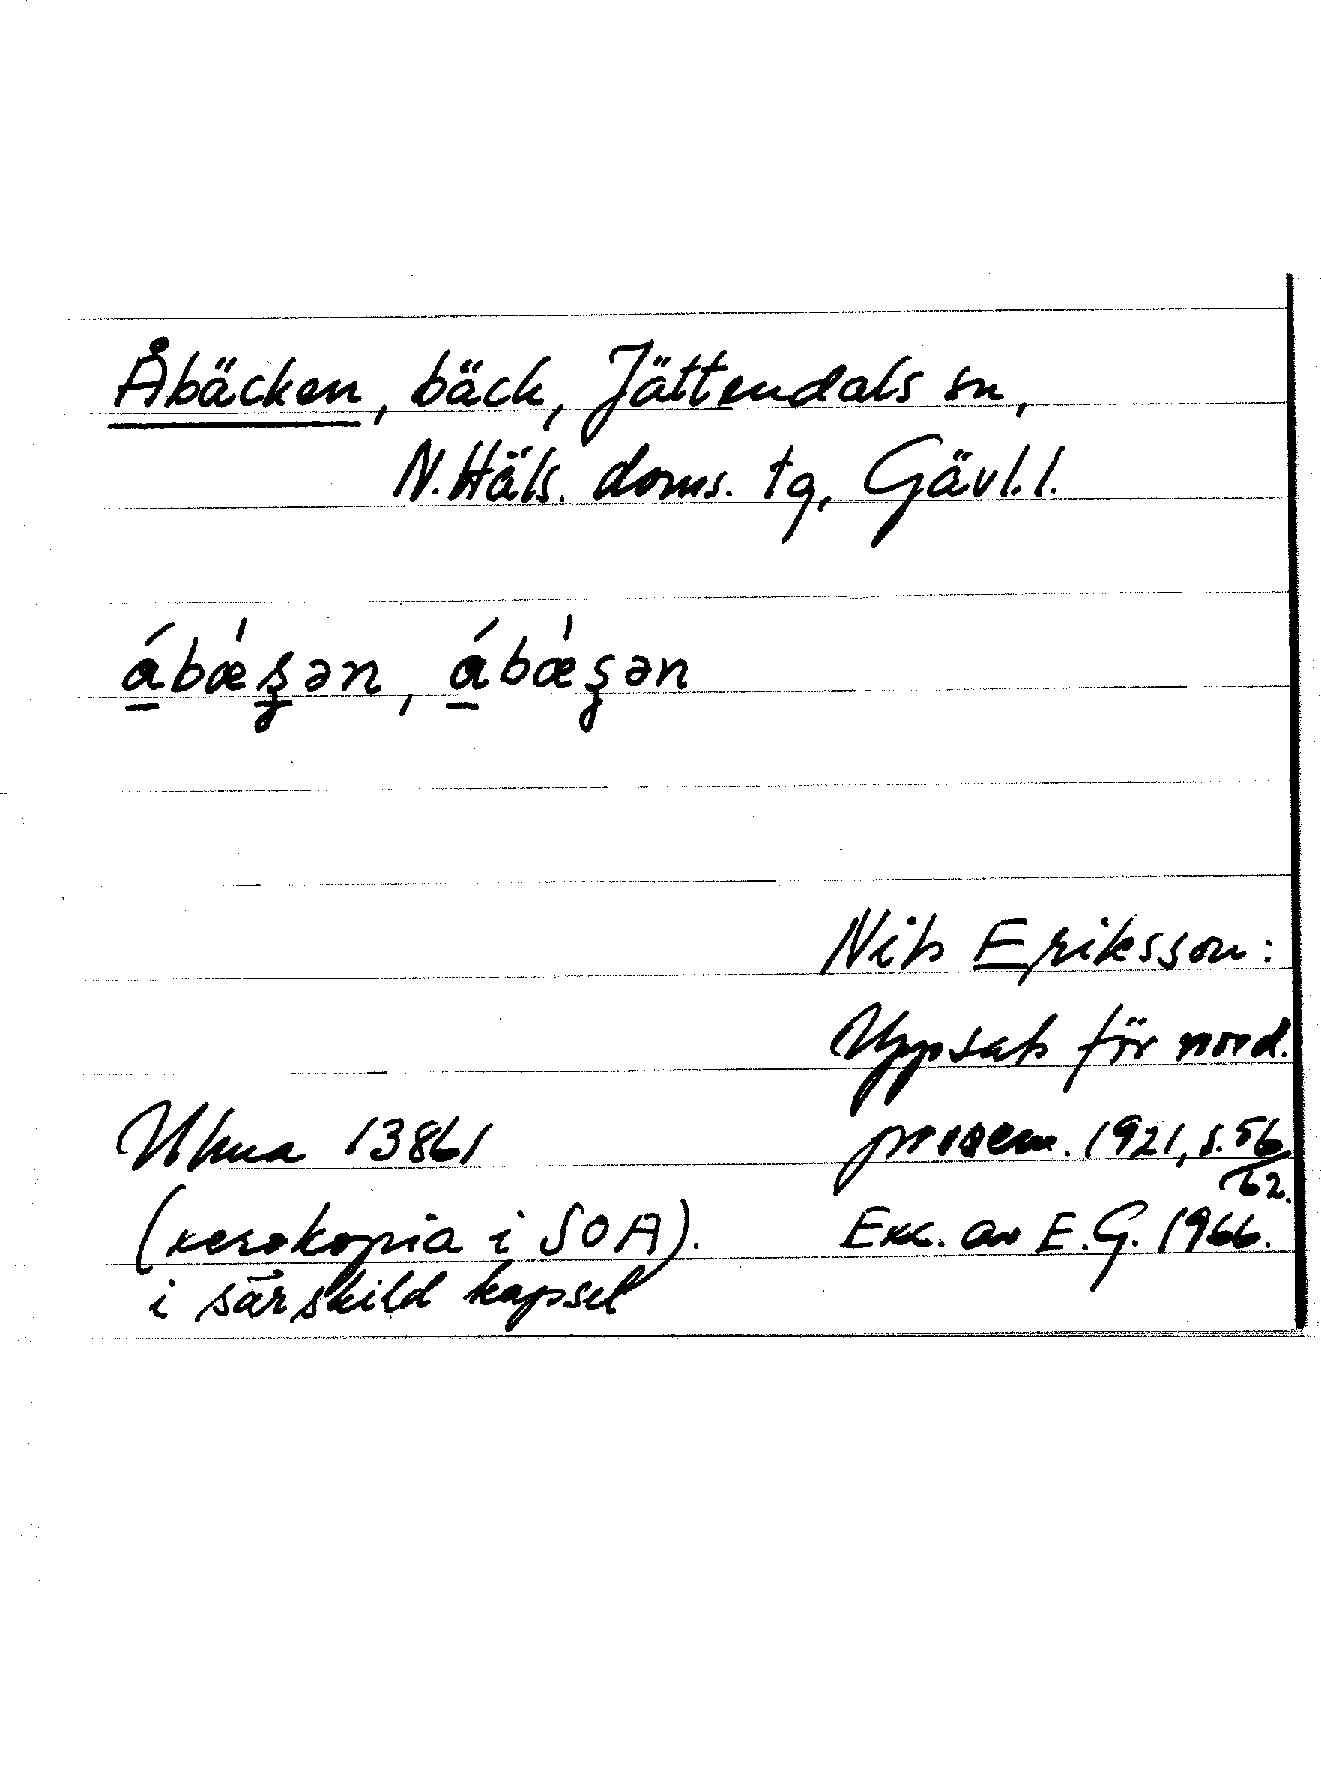 Åbäcken, bäck, Jättendals sn,
N. Häls. doms. tg, Gävl. l.
á̱bǽʂən, á̱bǽʂən
Nils Eriksson:
Uppsats för nord.
prosem. 1921, s. 56
62.
Ulma 13861
(xerokopia i SOA).
i särskild kapsel
Exc. av E. G. 1966.